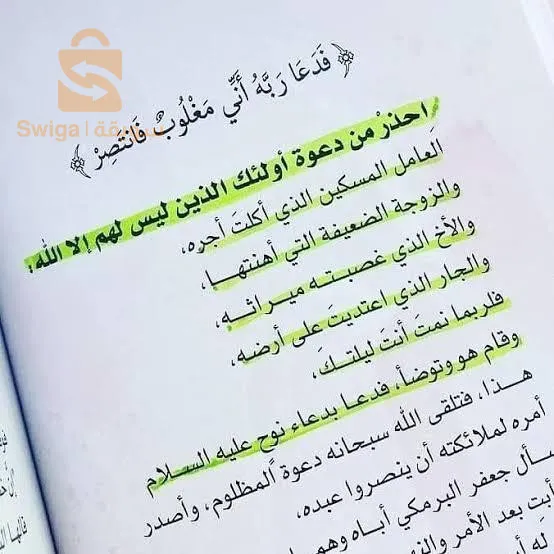 Swiga | سويقة
﴿ فَدَعَا رَبَّهُ أَنِّي مَغْلُوبٌ فَانتَصِرْ ﴾
احذرْ من دعوة أولئك الذين ليس لهم إلا الله،
العامل المسكين الذي أكلتَ أجره،
والزوجة الضعيفة التي أهنتهـا،
والأخ الذي غصبتـه ميـراثـه،
والجار الذي اعتديتَ على أرضه،
فلربما نمتَ أنتَ ليلتـكَ،
وقام هو وتوضأ، فدعـا بدعاء نوح عليه السـلام
هـذا، فتلقى الله سبحانه دعوة المظلوم، وأصدر
أمره لملائكته أن ينصروا عبده،
سأل جعفر البرمكي أباه وهم
بعد الأمر